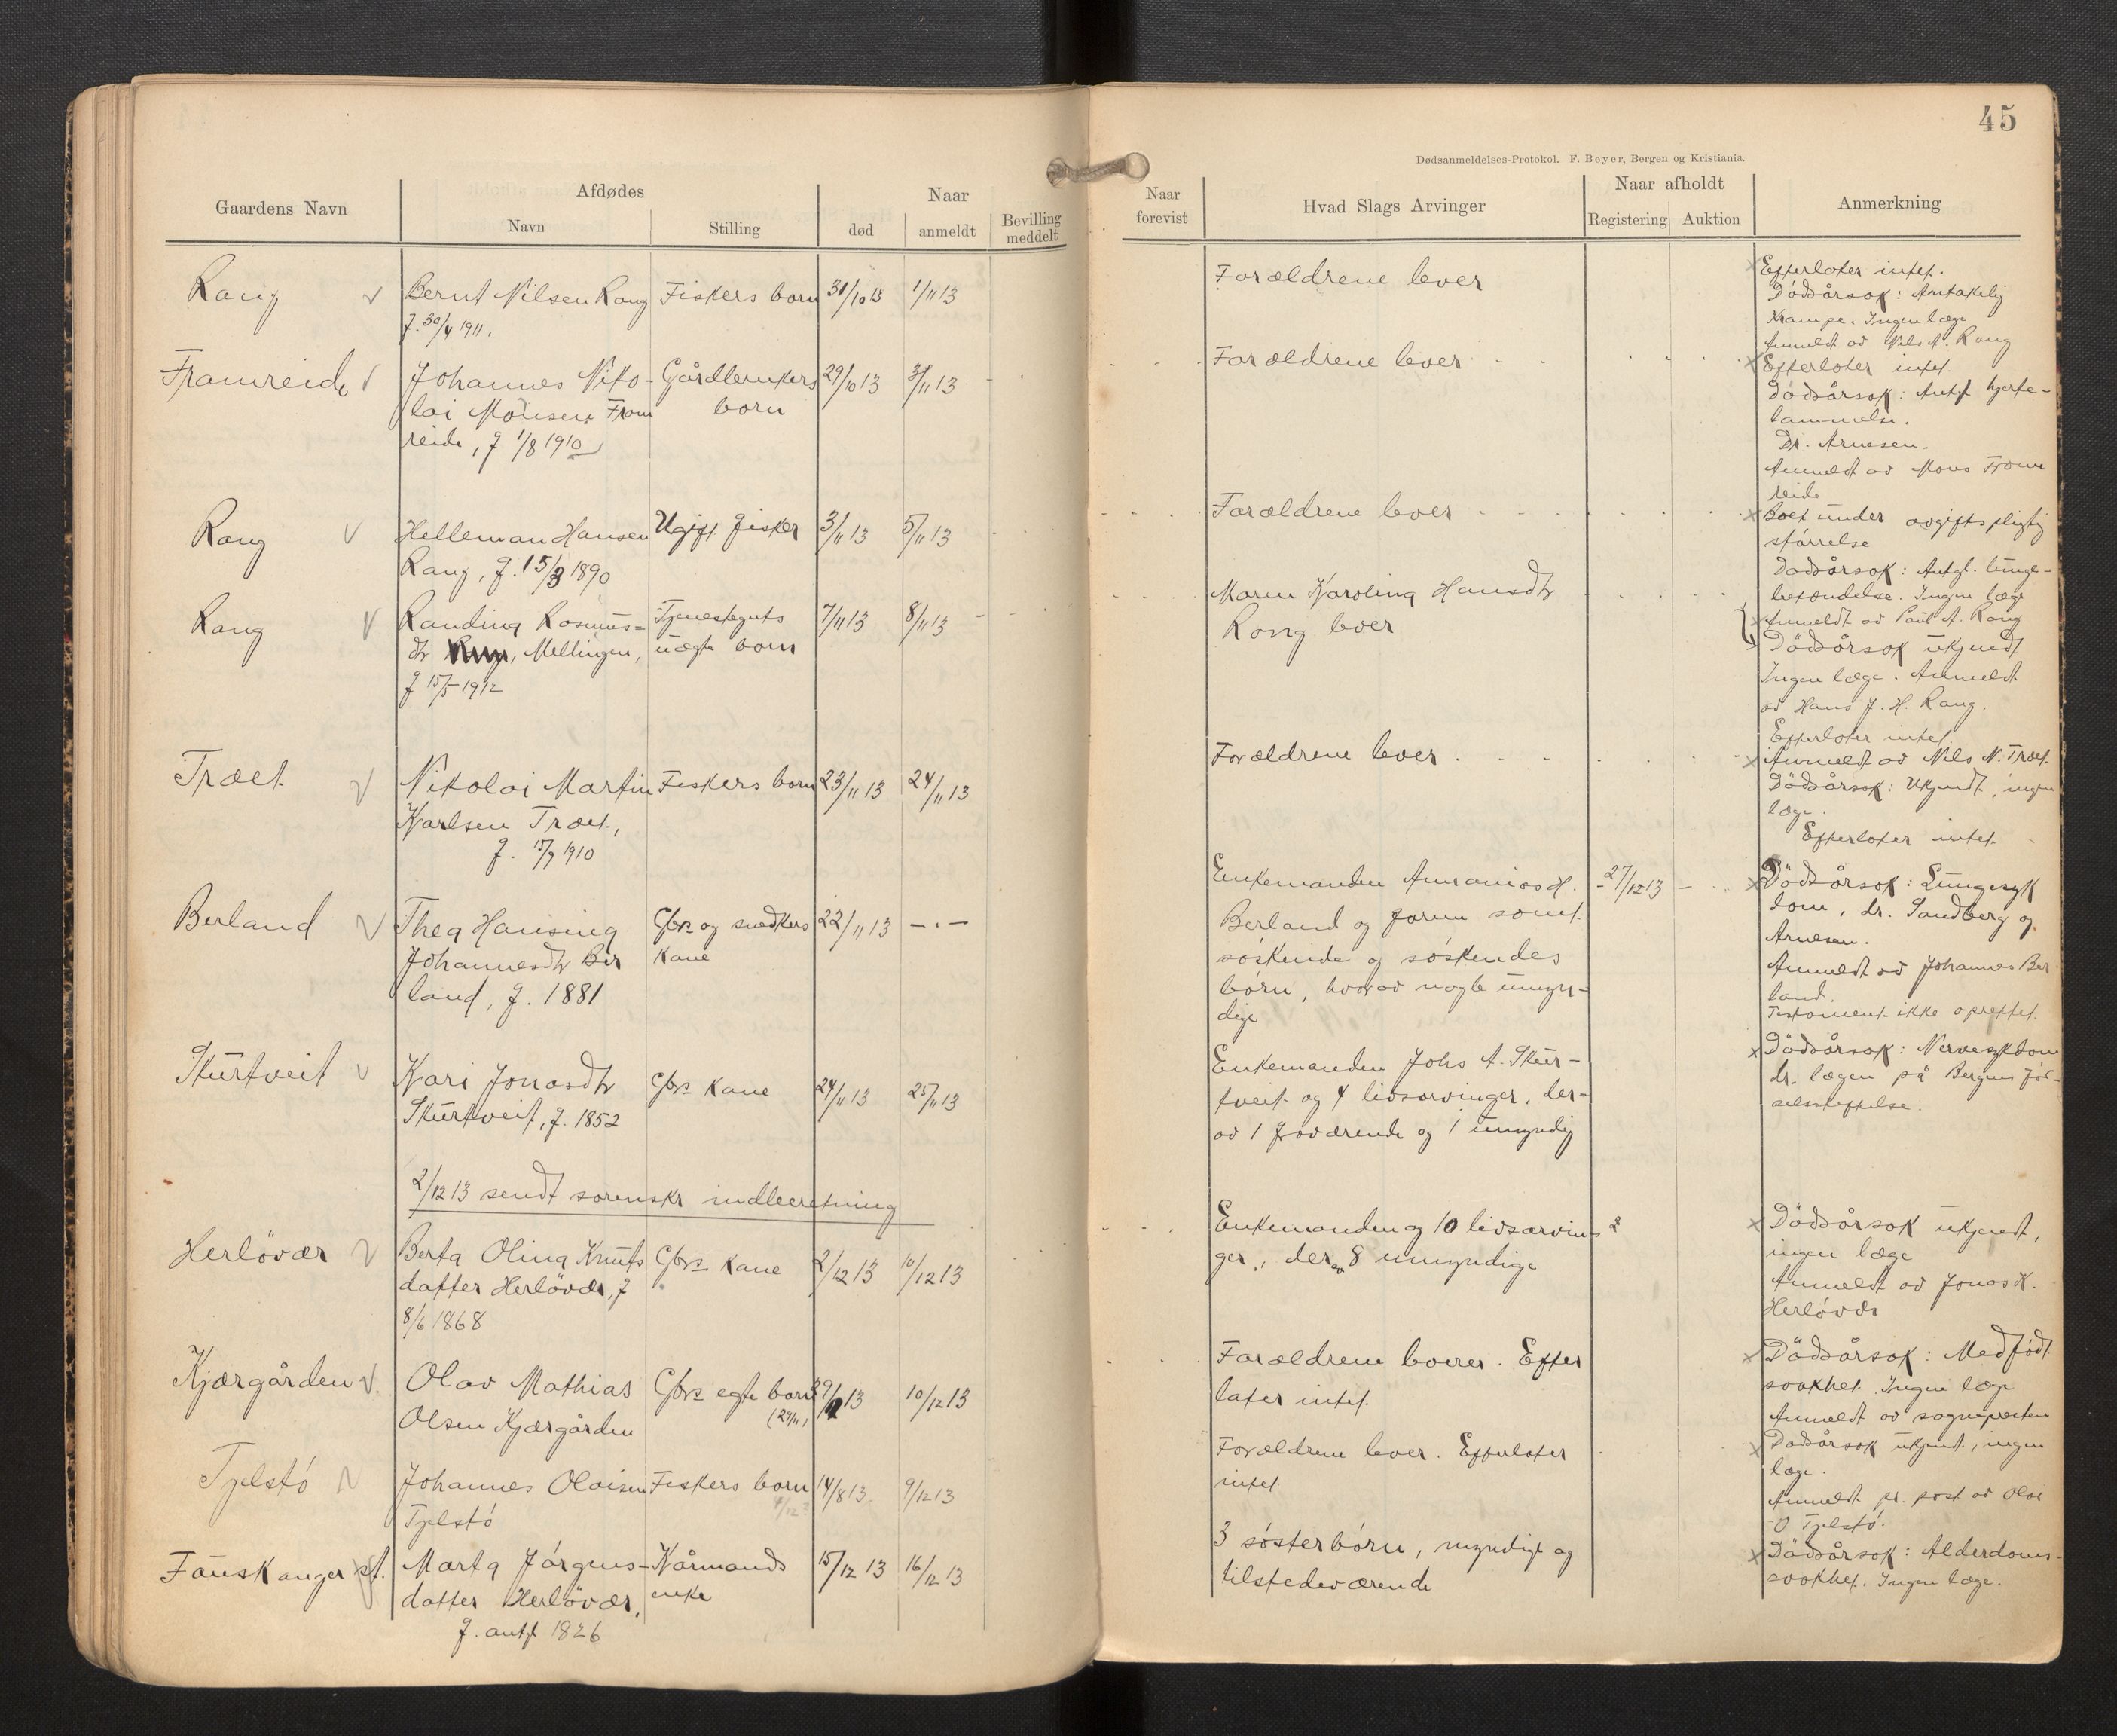 45
Dødsanmeldelses-Protokol. F. Beyer, Bergen og Kristiania.
Gaardens Navn
Afdødes
Navn
Stilling
Naar
død
anmeldt
Bevilling
meddelt
Naar
forevist
Hvad Slags Arvinger
Naar afholdt
Registering
Auktion
Anmerkning
Rong
Bernt Nilsen Rong
f. 30/4 1911.
Fiskers barn
31/10 13
1/11 13
Forældrene lever
Efterlater intet.
Dødsårsak: Antakelig
Krampe. Ingen læge
Anmeldt av Nils A. Rong
Framreide
Johannes Niko-
lai Monsen Fram
reide, f 1/8 1910
Gårdbrukers
barn
29/10 13
3/11 13
Forældrene lever
Efterlater intet.
Dødsårsak: Antgl hjerte-
lammelse.
Dr. Arnesen.
Anmeldt av Mons Fram
reide
Rong
Helleman Hansen
Rong, f. 15/3 1890
Ugift fisker
3/11 13
5/11 13
Forældrene lever
Boet under avgiftspligtig
størrelse
Dødsårsak: Antgl. lunge-
betændelse. Ingen læge
Anmeldt av Paul A. Rong
Rong
Randina Rasmus-
dtr, Mellingen,
f 15/5 1912
Tjenesteguts
uægte barn
7/11 13
8/11 13
Maren Karolina Hansdtr
Rong lever
Dødsårsak ukjendt
Ingen læge. Anmeldt
av Hans J. H. Rong.
Efterlater intet.
Træet
Nikolai Martin
Karlsen Træet,
f. 15/9 1910
Fiskers barn
23/11 13
24/11 13
Forældrene lever
Anmeldt av Nils N. Træet
Dødsårsak: Ukjendt, ingen
læge.
Efterlater intet.
Berland
Thea Hansina
Johannesdtr Ber
land, f. 1881
Gbrs og snedkers
kone
22/11 13
— . —
Enkemanden Annanias H.
Berland og foruten
søskende og søskendes
børn, hvorav nogle umyn-
dige
27/12 13
Dødsårsak: Lungesyk
dom, dr. Sandberg og
Arnesen.
Anmeldt av Johannes Ber
land.
Testament ikke oprettet.
Skurtveit
Kari Jonasdtr
Skurtveit, f. 1852
Gbrs kone
24/11 13
25/11 13
Enkemanden Johs A. Skur-
tveit og 4 livsarvinger, der-
av 1 fraværende og 1 umyndig
Dødsårsak: Nervesykdom
dr. lægen på Bergens fød-
selsstiftelse.
2/12 13 sendt sorenskr indberetning
Herløvær
Berta Olina Knuts
datter Herløvær, f
8/6 1868
Gbrs kone
2/12 13
10/12 13
Enkemanden og 10 livsarvin-
ger, derav 8 umyndige
2
Dødsårsak ukjendt,
ingen læge
Anmeldt av Jonas K.
Herløvær
Kjærgården
Olav Mathias
Olsen Kjærgården
Gbrs egte barn
(29/11)
29/11 13
10/12 13
Forældrene lever. Efter
later intet.
Dødsårsak: Medfødt
svakhet. Ingen læge
Anmeldt av sognepresten
Tjelstø
Johannes Olaisen
Tjelstø
Fiskers barn
14/8 13
9/12 13
Forældrene lever. Efterlater
intet.
Dødsårsak ukjent, ingen
læge.
Anmeldt pr. post av Olai
O Tjelstø.
Fauskanger
Marta Jørgens-
datter Herløvær,
f. antgl 1826
Kårmands
enke
15/12 13
16/12 13
3 søsterbørn, myndige og
tilstedeværende
Dødsårsak: Alderdoms-
svakhet. Ingen læge.